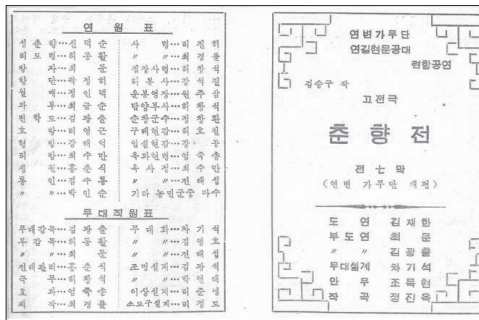 연 원 표
성춘향…신덕순
리도령…허동활
방 자…최 문
향 단…박정희
월 매…정인덕
과 부…최금순
변학도…김광출
호 방…리영근
형 방…강태억
리 방…최수만
생 원…홍춘식
통 인…김수룡
〃 〃…박인순
사 령…허진히
〃 〃…최경률
집장사령…허창석
허봉사…강석칠
운봉영장…원주삼
담양부사…허창석
순창군수…정창환
구례현감…허호철
임실현감…강 웅
옥과현령…엄축송
옥사정…최수만
〃 〃…전태섭
기타 농민군중 다수
무대직원표
무대감독…김광출
부감독…허동활
〃 〃…최 문
전태관리…홍춘식
극 무…허창석
효 과…엄축송
제 작…최경률
무대화…차기석
〃 〃…김영호
〃 〃…전태섭
조명설계…김광석
〃 〃…박현태
이상설계…리준녕
소도구설계…리정도
연변가무단
연길현문공대
련합공연
김승구 작
고전극
춘 향 전
전 七 막
(연변 가무단 개편)
도 연 김재한
부도연 최 문
〃 〃 김광출
무대설계 차기석
안 무 조득현
작 곡 정진옥